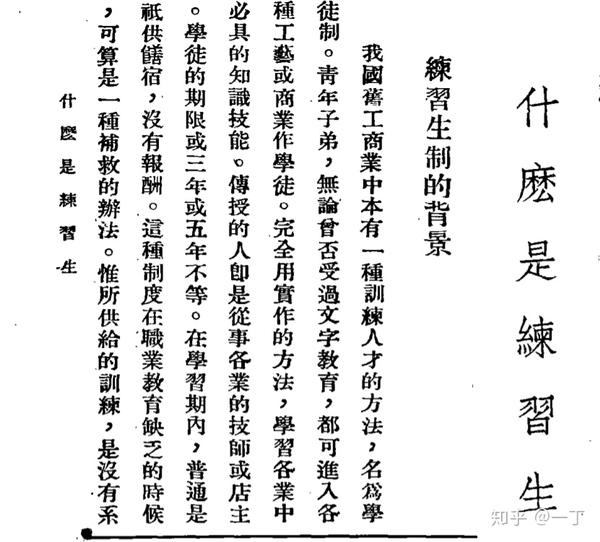 什麽是練習生
練習生制的背景
我國舊工商業中本有一種訓練人才的方法，名爲學
徒制。靑年子弟，無論曾否受過文字教育，都可進入各
種工藝或商業作學徒。完全用實作的方法，學習各業中
必具的知識技能。傳授的人卽是從事各業的技師或店主
。學徒的期限或三年或五年不等。在學習期內，普通是
祇供饍宿，沒有報酬。這種制度在職業教育缺乏的時候
，可算是一種補救的辦法。惟所供給的訓練，是沒有系
什麽是練習生
知乎 @一丁